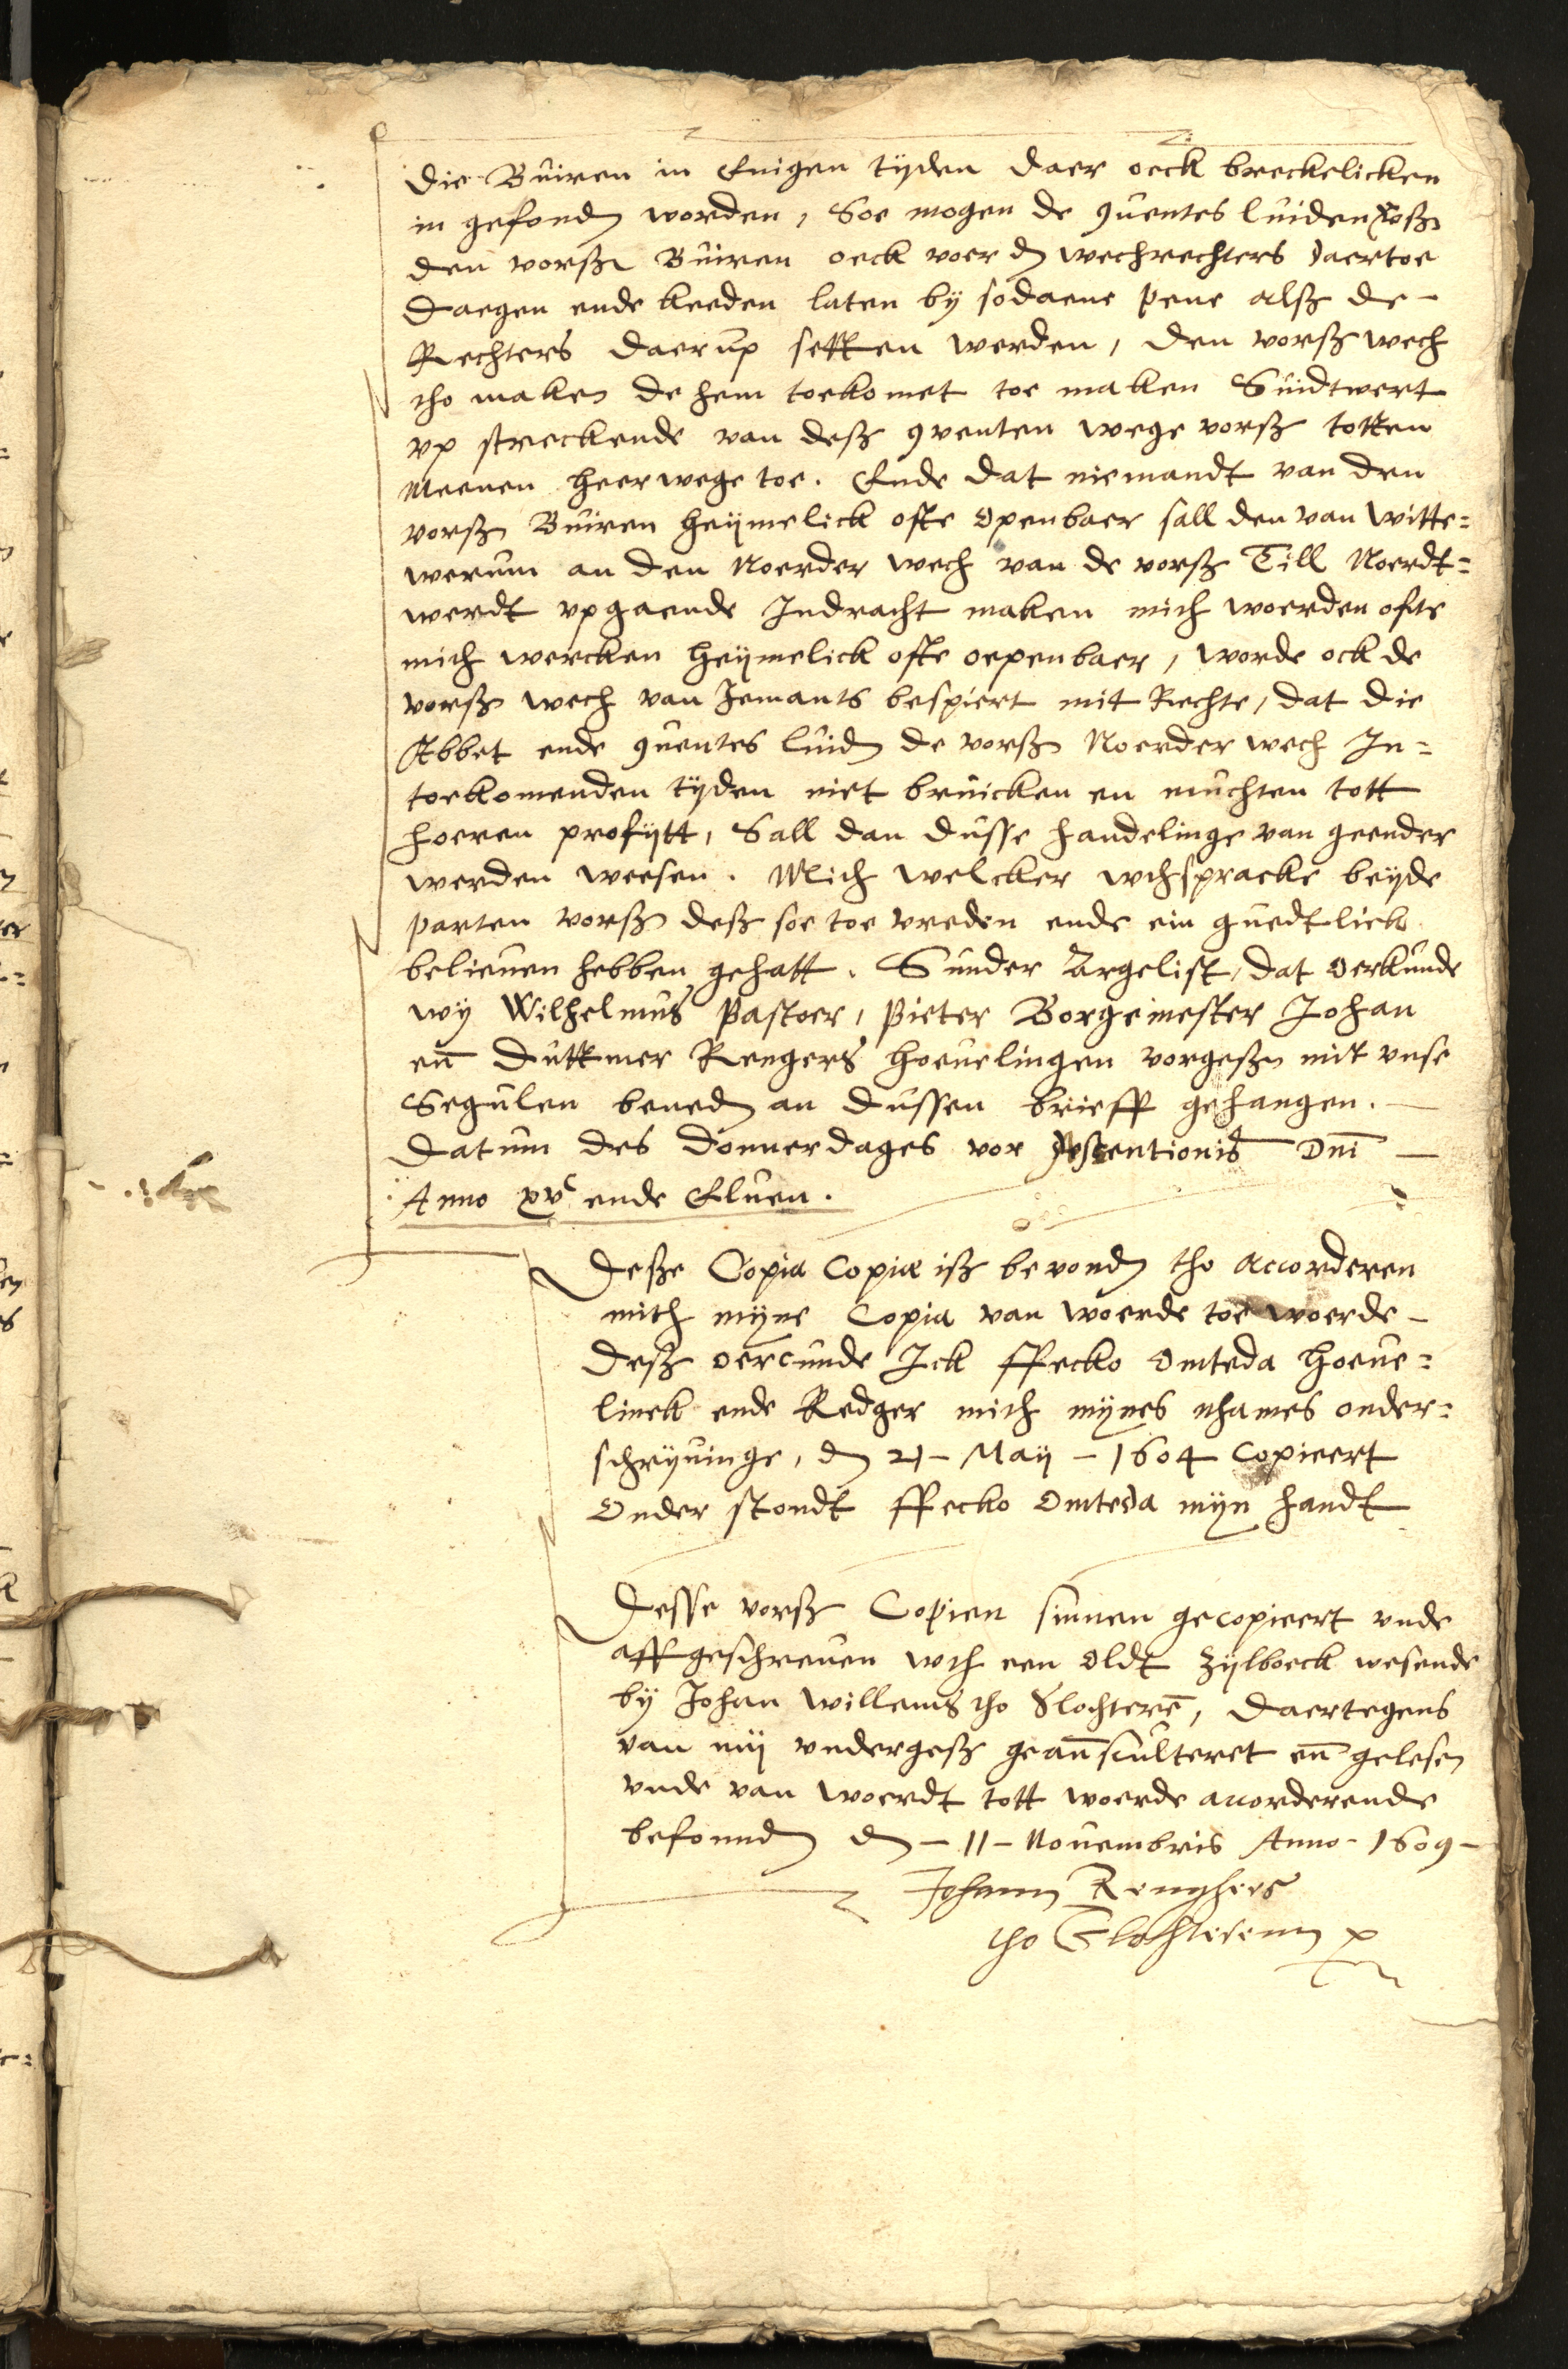 die Buiren in Enigen tijden daer oeck breckelicken
in gefonden worden, Soe mogen de 9uentes luiden vorß
den vorß Buiren oeck voer den wechrechters daertoe
daegen ende keeden laten by sodaene pene alß de -
Rechters daerup setten werden, den vorß wech
tho maken de hem toekomet toe maken Suidtwert
vp streckende van deß 9venten wege vorß totten
Meenen heerwege toe. Ende dat niemandt van den
vorß Buiren heijmelick ofte openbaer sall den van Witte=
werum an den Noerder wech van de vorß Till Noerdt=
werdt vpgaende Indracht maken mith woerden ofte
mith wercken heijmelick ofte oepenbaer, worde ock de
vorß wech van Iemants bespiert mit Rechte, dat die
Abbet ende 9uentes luiden de vorß Noerder wech In=
toekomenden tijden niet bruicken en muchten tott
hoeren profijtt, Sall dan dusse handelinge van geender
werden weesen. Mith welcker wthspracke beijde
parten vorß deß soe toe vreden ende ein guedtlick
belieuen hebben gehatt. Sunder Argelist, dat oerkunde
wij Wilhelmus Pastoer, Pieter Borgemester Johan
en̄ Duttmer Rengers hoeuelingen vorgeß mit vnse
Segulen beneden an dussen brieff gehangen. -
Datum des donnerdages vor Ascentionis Dn̄i -
Anno xvc ende Eluen.
Deße Copia Copiæ iß bevonden tho accorderen
mith mijne Copia van woerde toe woerde -
Deß oercunde Ick ffecko Omteda Hoeue=
linck ende Redger mith mijnes nhames onder=
schrijuinge, den 21 - Maij - 1604 Copieert
Onder stondt ffecko Omteda mijn handt
Desse vorß Copien sinnen gecopieert vnde
affgeschreuen wth een oldt Zijlboeck wesende
bij Johan Willems tho Slochterē, daertegens
van mij vndergeß geausculteret en̄ gelesen
vnde van woerdt tott woerde accorderende
befonnden den - 11 - Nouembris Anno - 1609 -
Johann Renghers
tho Slochterenn